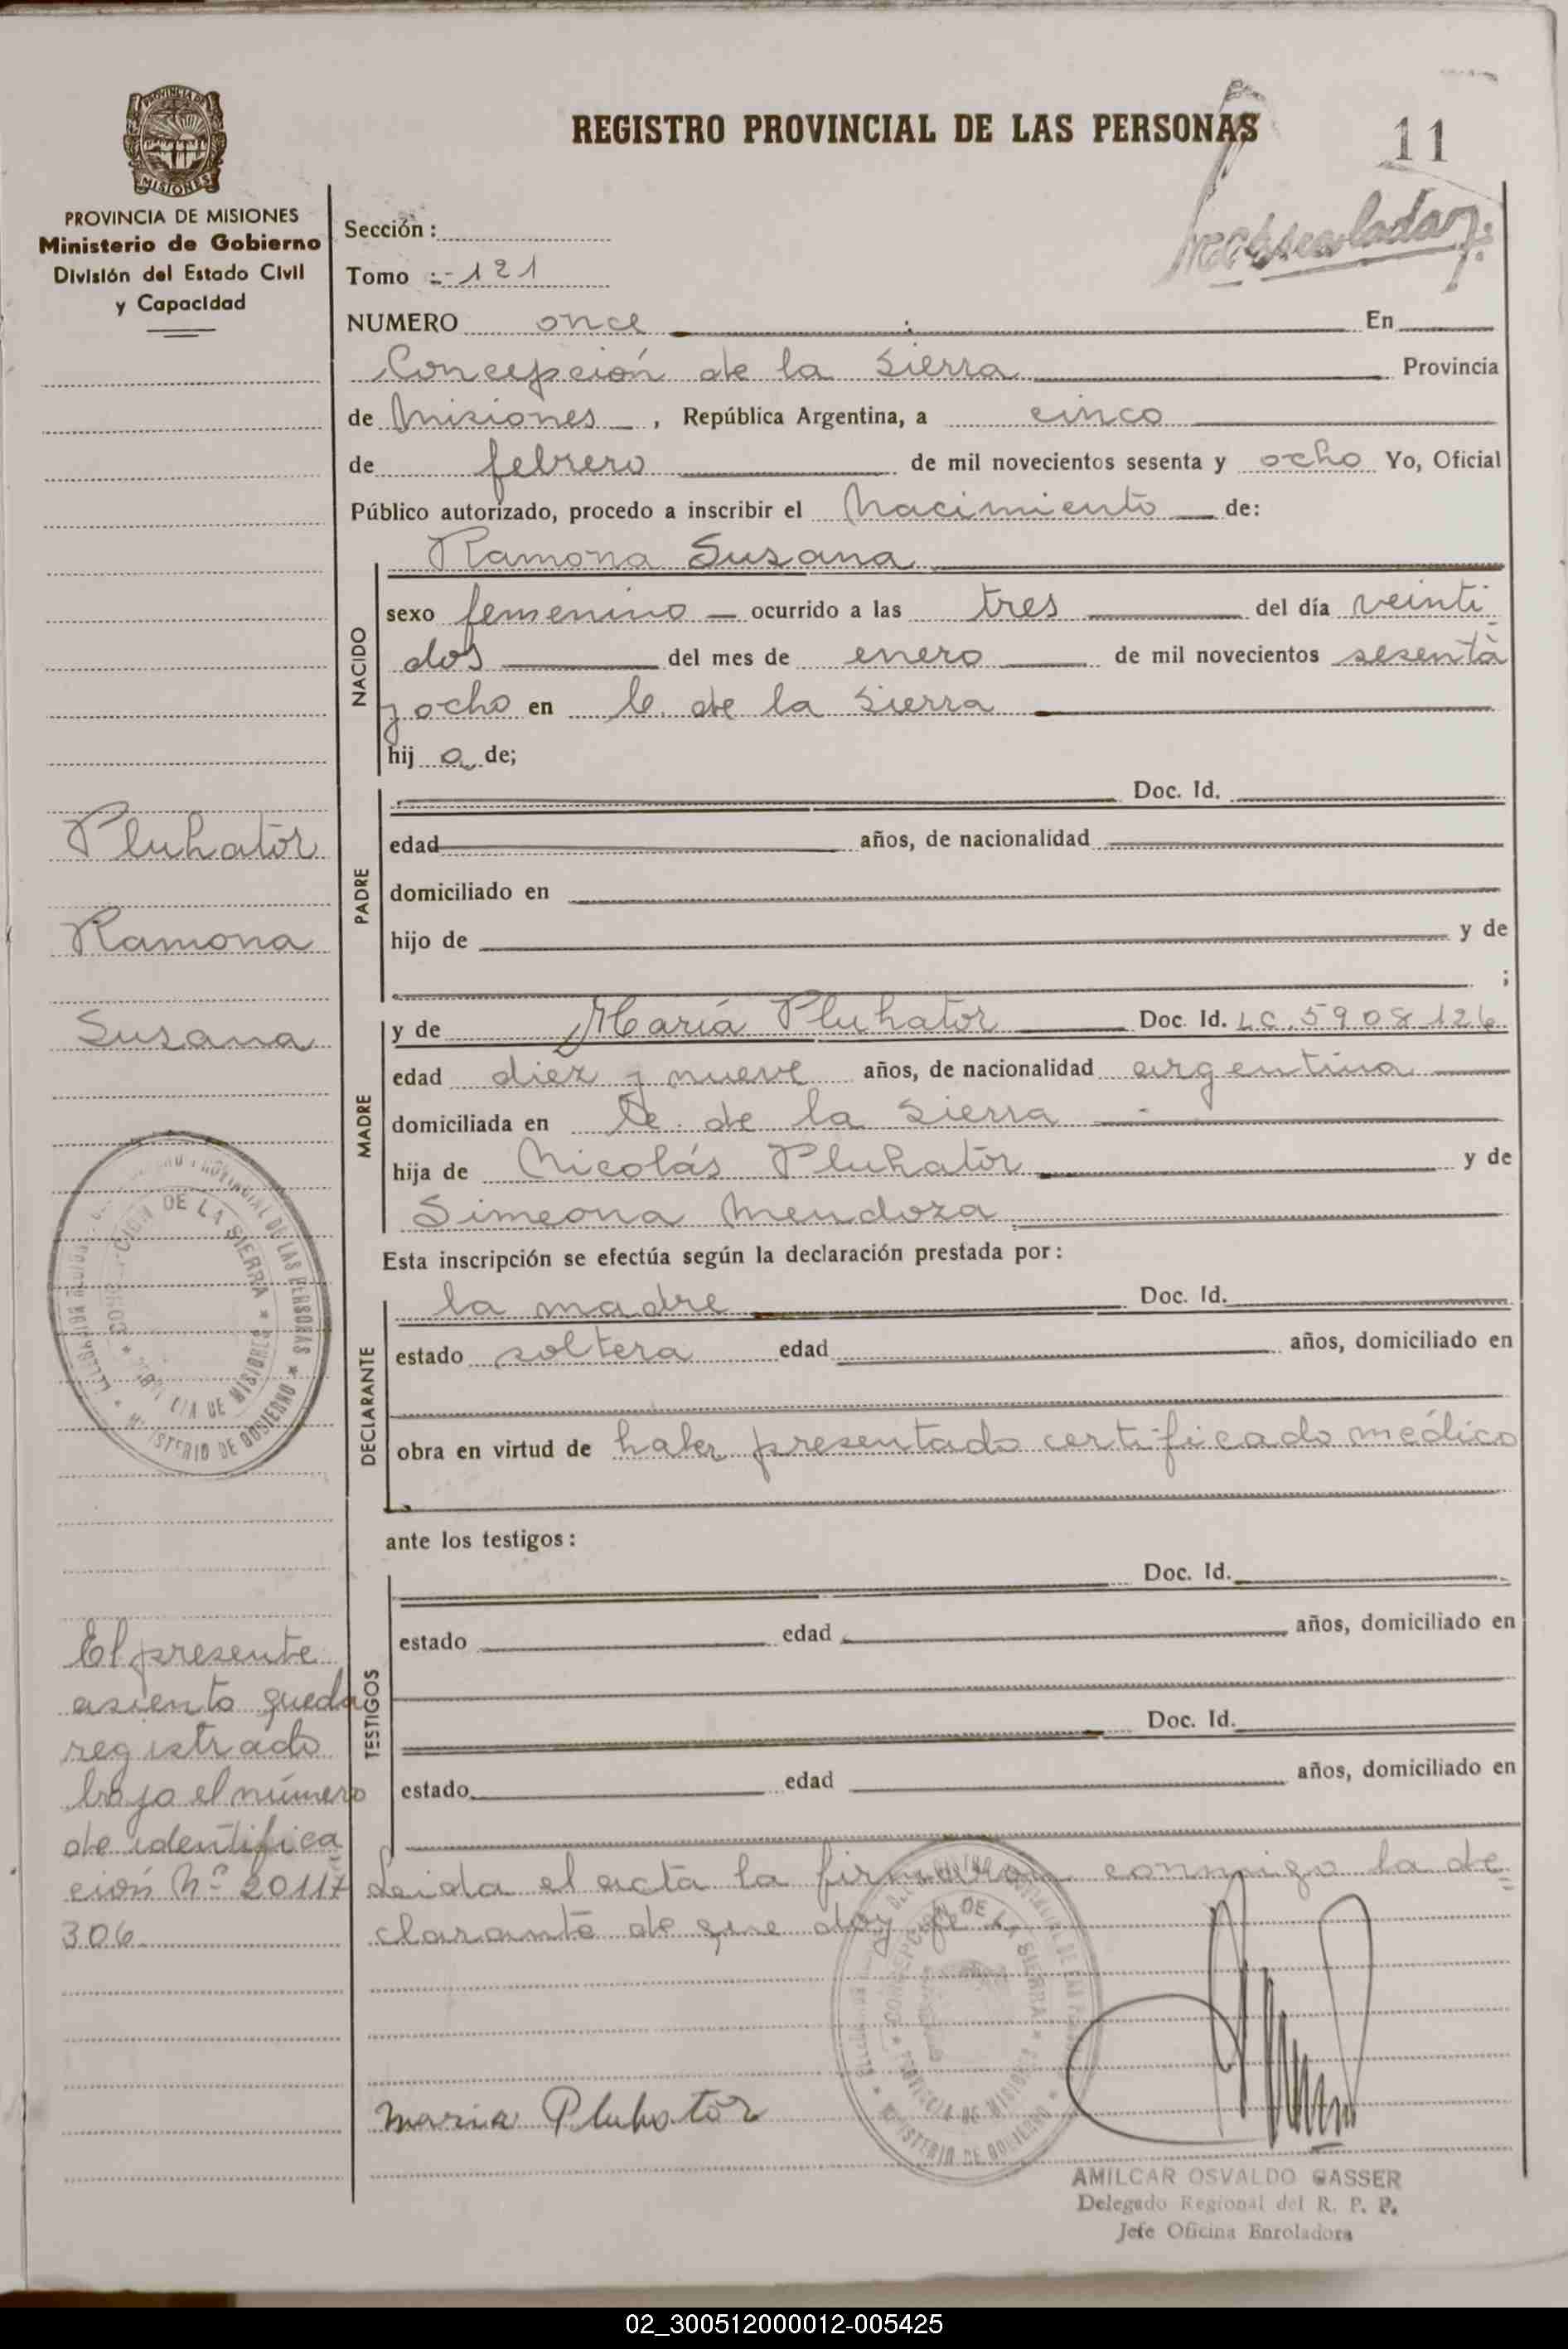 REGISTRO PROVINCIAL DE LAS PERSONAS
11
PROVINCIA DE MISIONES
Ministerio de Gobierno
División del Estado Civil
y Capacidad
Sección :
Tomo :- 121
NUMERO once En
Concepción de la Sierra Provincia
de Misiones , República Argentina, a cinco
de febrero de mil novecientos sesenta y ocho Yo, Oficial
Público autorizado, procedo a inscribir el Nacimiento de:
NACIDO
Ramona Susana
sexo femenino ocurrido a las tres del día veinti
dos del mes de enero de mil novecientos sesenta
y ocho en C. de la Sierra
hij a de;
PADRE
Doc. Id.
edad años, de nacionalidad
domiciliado en
hijo de y de
;
MADRE
y de María Pluhator Doc. Id. LC. 5908126
edad diez y nueve años, de nacionalidad argentina
domiciliada en C. de la Sierra
hija de Nicolás Pluhator y de
Simeona Mendoza
Esta inscripción se efectúa según la declaración prestada por :
DECLARANTE
la madre Doc. Id.
estado soltera edad años, domiciliado en
obra en virtud de haber presentado certificado médico
ante los testigos :
TESTIGOS
Doc. Id.
estado edad años, domiciliado en
Doc. Id.
estado edad años, domiciliado en
Leida el acta la firma conmigo la de=
clarante de que doy fe
Maria Pluhator
AMILCAR OSVALDO GASSER
Delegado Regional del R. P. P.
Jefe Oficina Enroladora
Pluhator
Ramona
Susana
CONCEPCION DE LA SIERRA
PROVINCIA DE MISIONES
MINISTERIO DE GOBIERNO
El presente
asiento queda
registrado
bajo el número
de identifica
ción Nº 20117
306
02_300512000012-005425